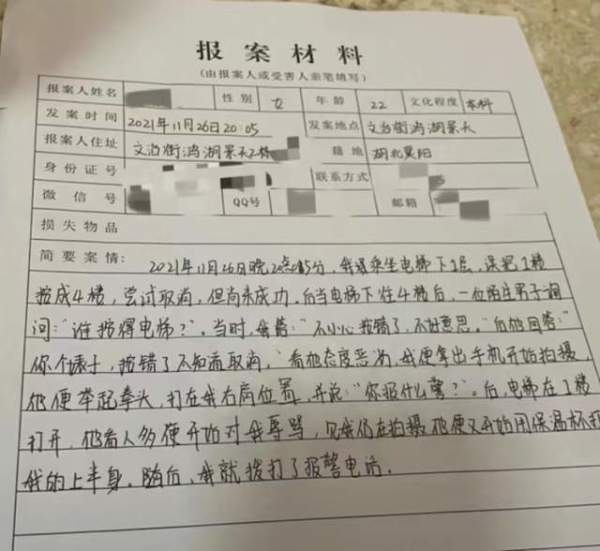 报案材料
(由报案人或受害人亲笔填写)
报案人姓名 性别 女 年龄 22 文化程度 本科
发案时间 2021年11月26日20:05 发案地点 文治街鸿湖景天
报案人住址 文治街鸿湖景天2栋 籍地 湖北
身份证号 联系方式
微信号 QQ号 邮箱
损失物品
简要案情: 2021年11月26日晚20点05分,我乘坐电梯下1层,误把1楼
按成4楼,尝试取消,但尚未成功。后当电梯下往4楼后,一位陌生男子询
问:“谁按得电梯?”。当时,我答:“不小心按错了,不好意思。”后他回答:“
你个婊子,按错了不知道取消,”看他态度恶劣,我便拿出手机开始拍摄,
他便举起拳头,打在我右肩位置,并说:“你报什么警?”。后,电梯在1楼
打开,他看人多便开始对我辱骂,见我仍在拍摄他便又开始用保温杯打
我的上半身。随后,我就拨打了报警电话.